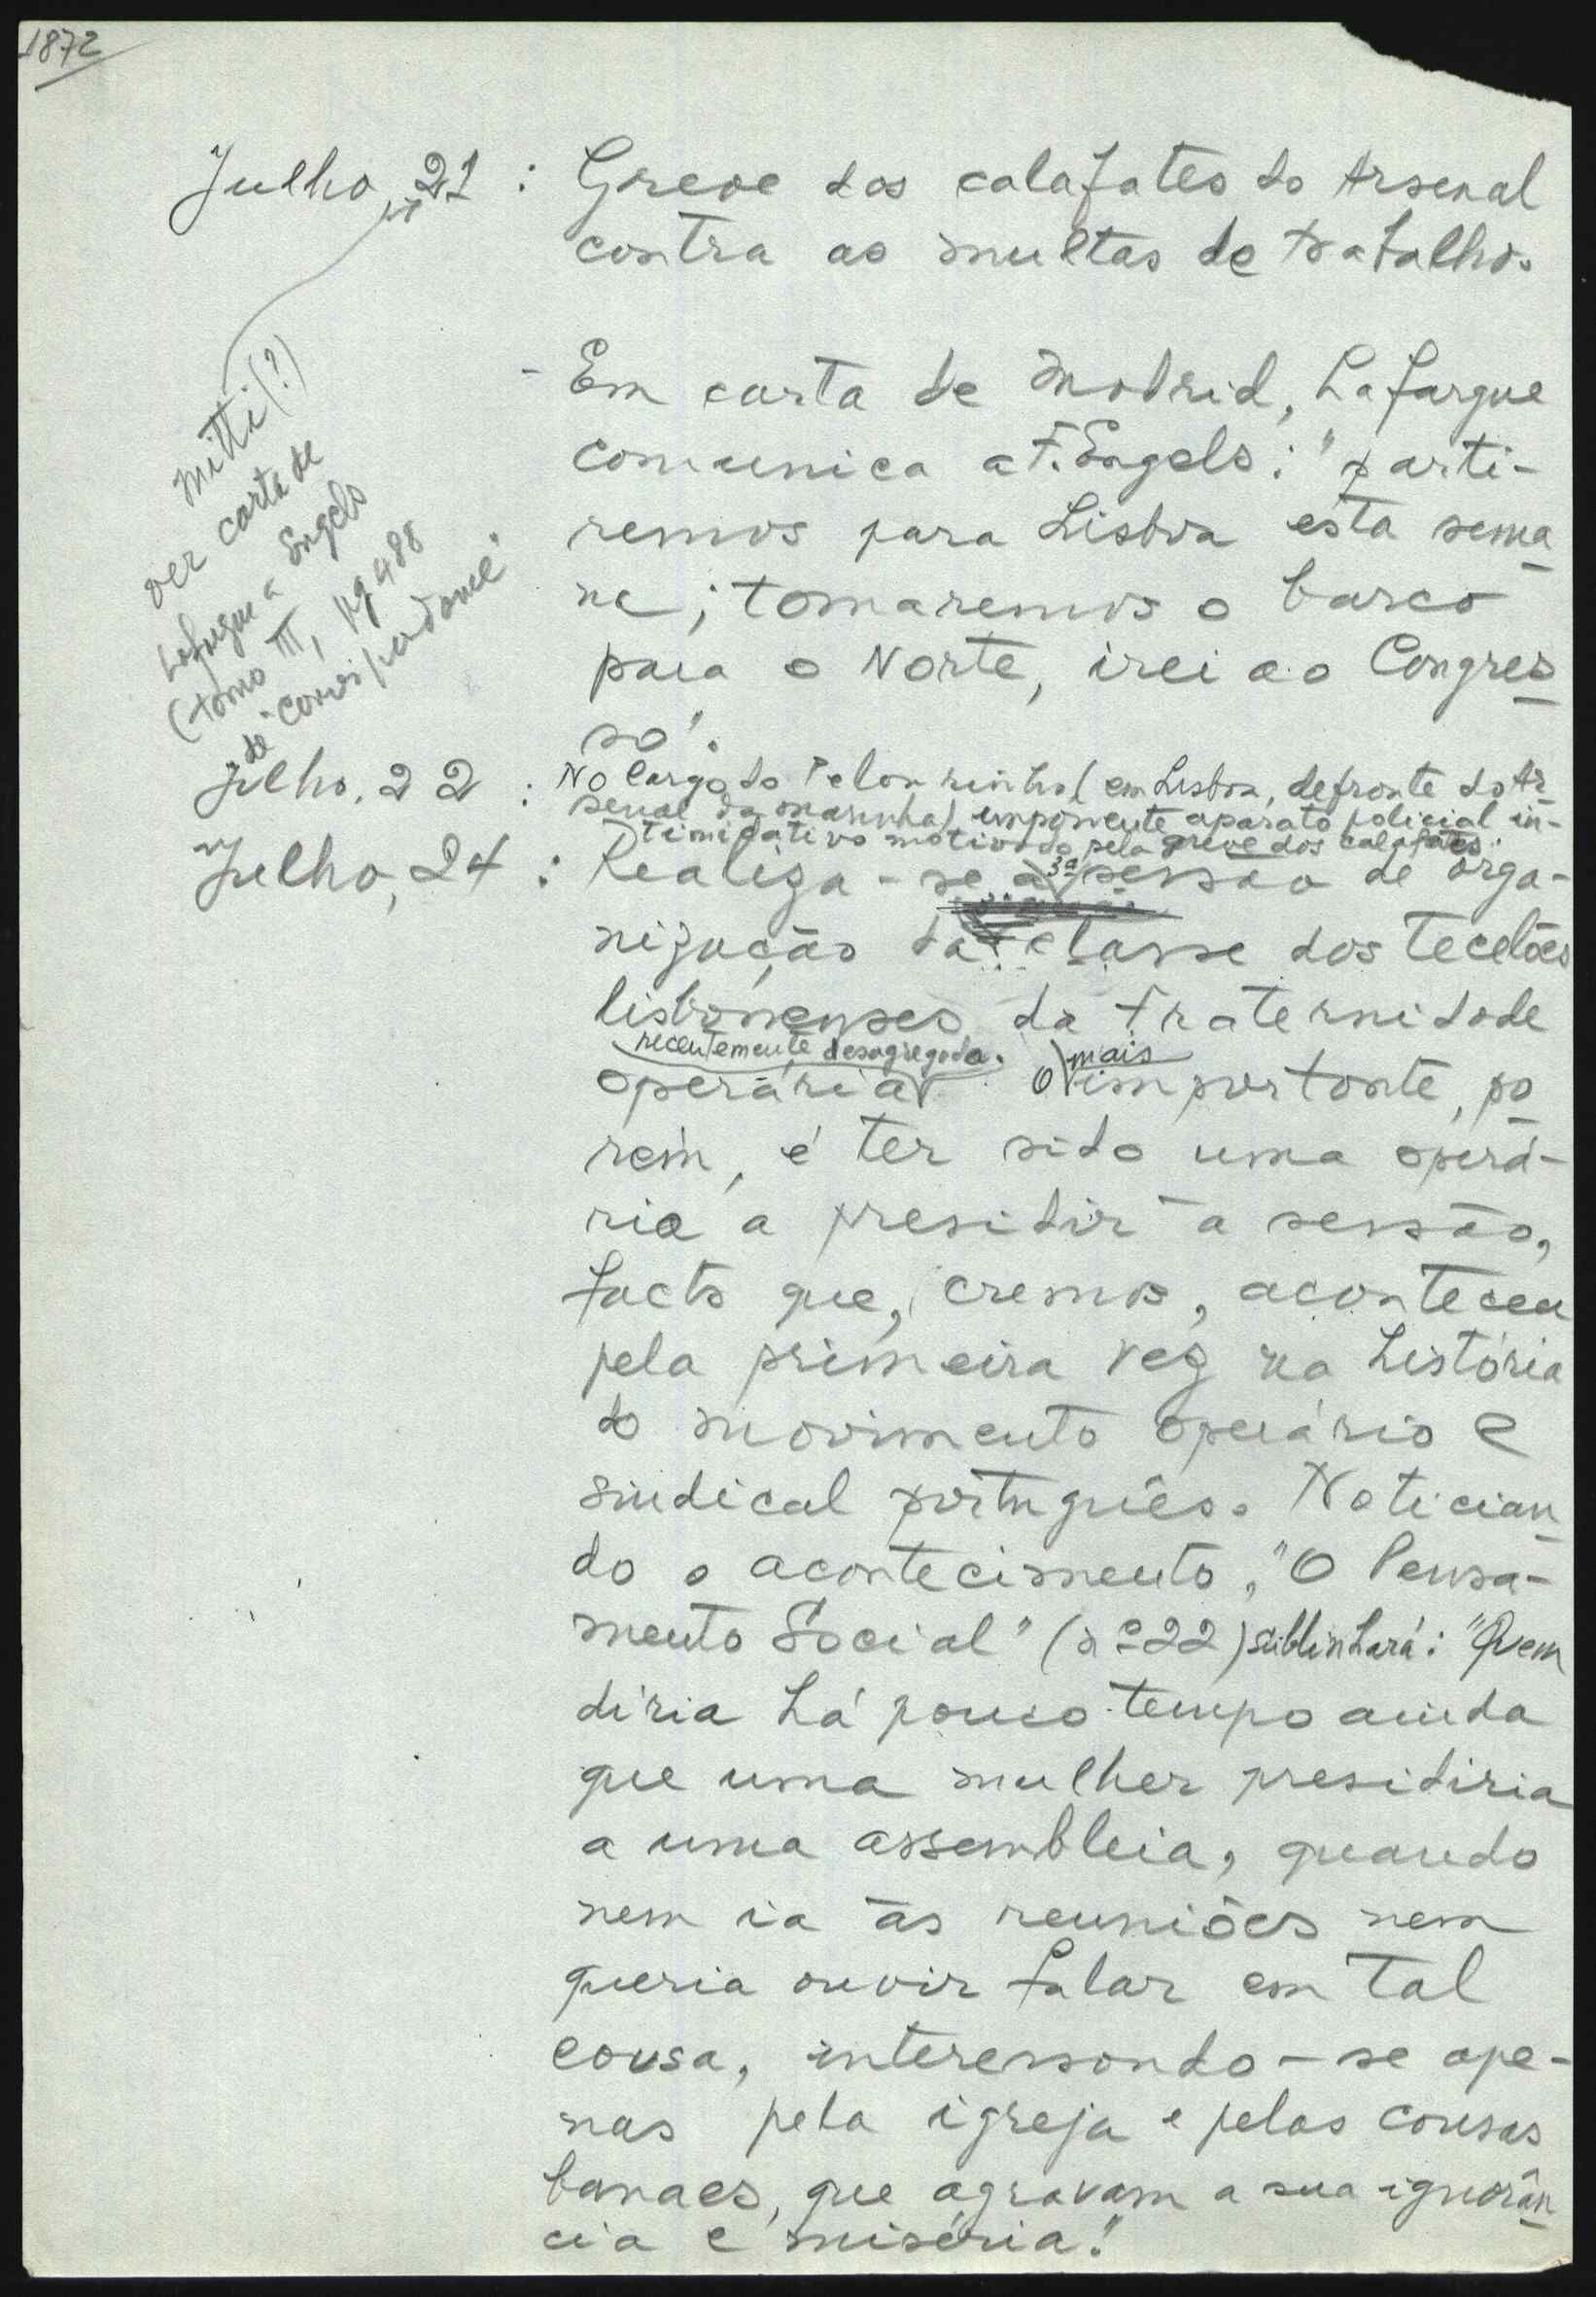 1872
Julho, 21 : Greve dos calafates do Arsenal
contra as multas de trabalho.
- Em carta de Madrid, Lafargue
comunica a F. Engels: "parti-
remos para Lisboa esta sema
na; tomaremos o barco
para o Norte, irei ao Congres
so".
Mitti (?)
ver carta de
Lafargue a Engels
(tomo III, pg 488
de "correspondance"
Julho, 22 : No largo do Pelourinho (em Lisboa, defronte do Ar
senal da marinha) imponente aparato policial in-
timidativo motivado pela greve dos calafates.
Julho, 24 : Realiza-se a 3ª sessão de orga-
nização da classe dos tecelões
lisbonenses da Fraternidade
recentemente desagregada. mais
operária. O importante, po
rém, é ter sido uma operá-
ria a presidir à sessão,
facto que, cremos, aconteceu
pela primeira vez na história
do movimento operário e
sindical português. Notician
do o acontecimento, "O Pensa-
mento Social" (nº 22) sublinhará: "Quem
diria há pouco tempo ainda
que uma mulher presidiria
a uma assembleia, quando
nem ia às reuniões nem
queria ouvir falar em tal
cousa, interessando-se ape-
nas pela igreja e pelas cousas
banaes, que agravam a sua ignorân
cia e miséria!"